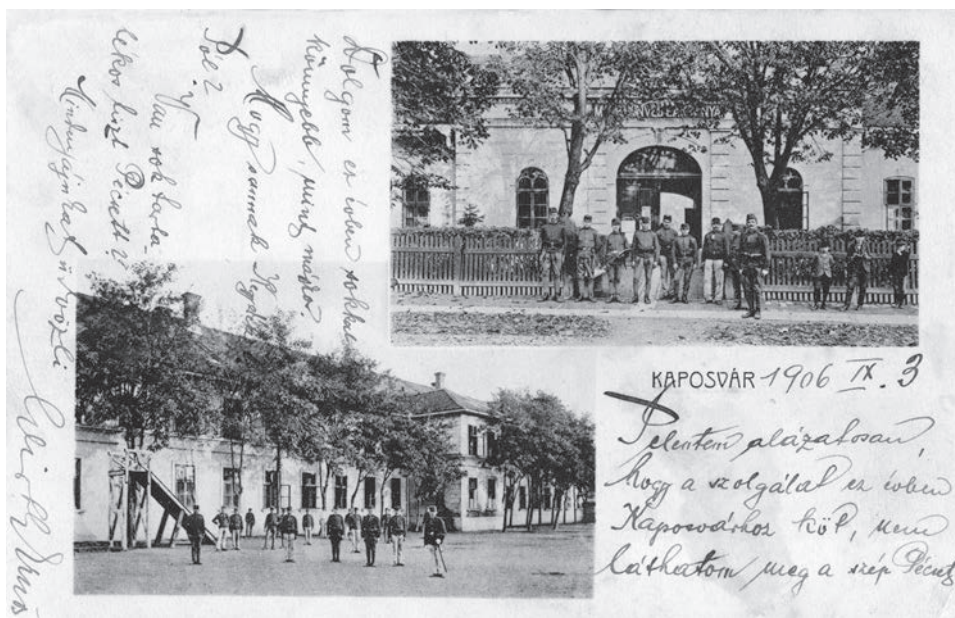 KAPOSVÁR 1906 IX. 3
Jelentem alázatosan,
hogy a szolgálat ez évben
Kaposvárhoz köt, nem
láthatom meg a szép Pécset
Dolgom ez évben sokkal
könnyebb, mint máskor.
Hogy vannak
Van sok tarta-
lékos hiszt Pécsett?
Mindnyájukat üdvözli